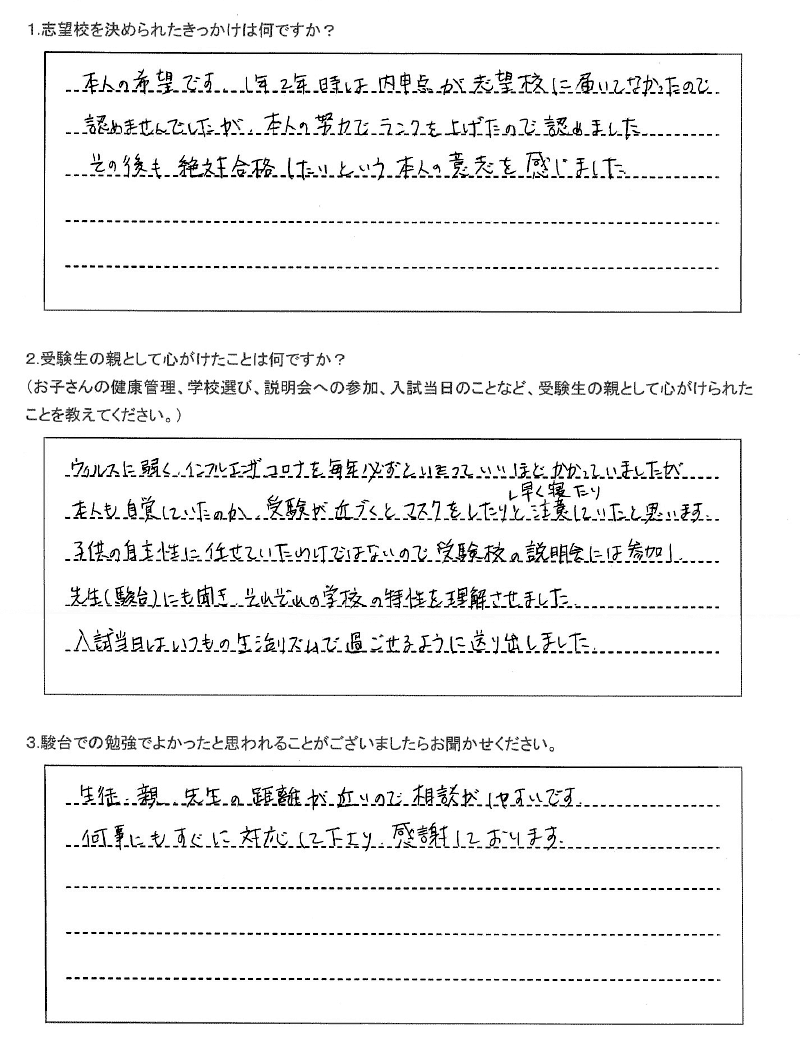 1.志望校を決められたきっかけは何ですか？
本人の希望です。1年2年時は内申点が志望校に届いてなかったので
認めませんでしたが、本人の努力でランクを上げたので認めました
その後も絶対合格したいという本人の意志を感じました
2.受験生の親として心がけたことは何ですか？
（お子さんの健康管理、学校選び、説明会への参加、入試当日のことなど、受験生の親として心がけられた
ことを教えてください。）
ウィルスに弱く、インフルエンザコロナを毎年必ずといっていいほどかかっていましたが
本人も自覚していたのか、受験が近づくとマスクをしたり早く寝たりと注意していたと思います。
子供の自主性に任せていたわけではないので受験校の説明会には参加し、
先生(駿台)にも聞き、それぞれの学校の特性を理解させました。
入試当日はいつもの生活リズムで過ごせるように送り出しました。
3.駿台での勉強でよかったと思われることがございましたらお聞かせください。
生徒、親、先生の距離が近いので相談がしやすいです。
何事にもすぐに対応して下さり、感謝しております。